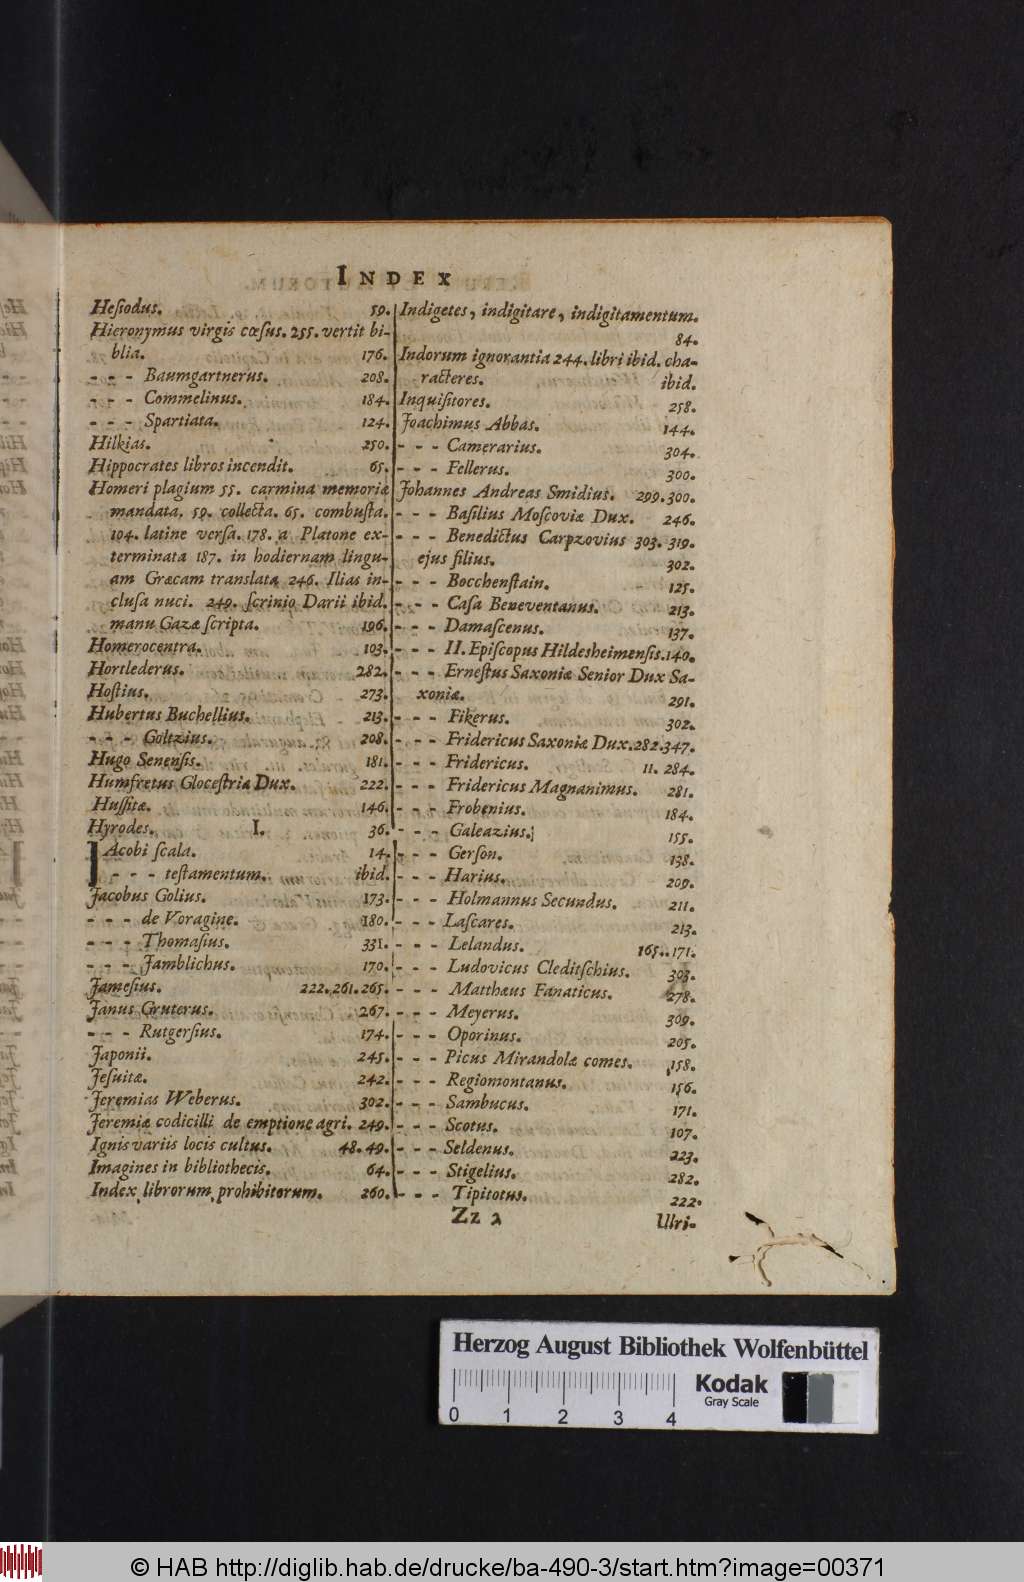 INDEX
Heſiodus. 59.
Hieronymus virgis cœſus. 255. vertit bi-
blia. 176.
- - - Baumgartnerus. 208.
- - - Commelinus. 184.
- - - Spartiata. 124.
Hilkias. 250.
Hippocrates libros incendit. 65.
Homeri plagium 55. carmina memoriæ
mandata. 59. collecta. 65. combuſta.
104. latine verſa. 178. a Platone ex-
terminata 187. in hodiernam lingu-
am Græcam translata 246. Ilias in-
cluſa nuci. 249. ſcrinio Darii ibid.
manu Gazæ ſcripta. 196.
Homerocentra. 103.
Hortlederus. 282.
Hoſtius. 273.
Hubertus Buchellius. 213.
- - - Goltzius. 208.
Hugo Senenſis. 181.
Humfretus Gloceſtriæ Dux. 222.
Huſſitæ. 146.
Hyrodes. 36.
I.
JAcobi ſcala. 14.
- - - teſtamentum. ibid.
Jacobus Golius. 173.
- - - de Voragine. 180.
- - - Thomaſius. 331.
- - - Jamblichus. 170.
Jameſius. 222. 261. 265.
Janus Gruterus. 267.
- - - Rutgerſius. 174.
Japonii. 245.
Jeſuitæ. 242.
Jeremias Weberus. 302.
Jeremiæ codicilli de emptione agri. 249.
Ignis variis locis cultus. 48. 49.
Imagines in bibliothecis. 64.
Index librorum prohibitorum. 260.
Indigetes, indigitare, indigitamentum.
84.
Indorum ignorantia 244. libri ibid. cha-
racteres. ibid.
Inquiſitores. 258.
Joachimus Abbas. 144.
- - - Camerarius. 304.
- - - Fellerus. 300.
Johannes Andreas Smidius. 299. 300.
- - - Baſilius Moſcoviæ Dux. 246.
- - - Benedictus Carpzovius 303. 319.
ejus filius. 302.
- - - Bocchenſtain. 125.
- - - Caſa Beneventanus. 213.
- - - Damaſcenus. 137.
- - - II. Epiſcopus Hildesheimenſis. 140.
- - - Erneſtus Saxoniæ Senior Dux Sa-
xoniæ. 291.
- - - Fikerus. 302.
- - - Fridericus Saxoniæ Dux. 282. 347.
- - - Fridericus. 11. 284.
- - - Fridericus Magnanimus. 281.
- - - Frobenius. 184.
- - - Galeazius. 155.
- - - Gerſon. 138.
- - - Harius. 209.
- - - Holmannus Secundus. 211.
- - - Laſcares. 213.
- - - Lelandus. 165. 171.
- - - Ludovicus Cleditſchius. 303.
- - - Matthæus Fanaticus. 278.
- - - Meyerus. 309.
- - - Oporinus. 205.
- - - Picus Mirandolæ comes. 158.
- - - Regiomontanus. 156.
- - - Sambucus. 171.
- - - Scotus. 107.
- - - Seldenus. 223.
- - - Stigelius. 282.
- - - Tipitotus. 222.
Zz 2 Ulri-
Herzog August Bibliothek Wolfenbüttel
Kodak
Gray Scale
0 1 2 3 4
© HAB http://diglib.hab.de/drucke/ba-490-3/start.htm?image=00371